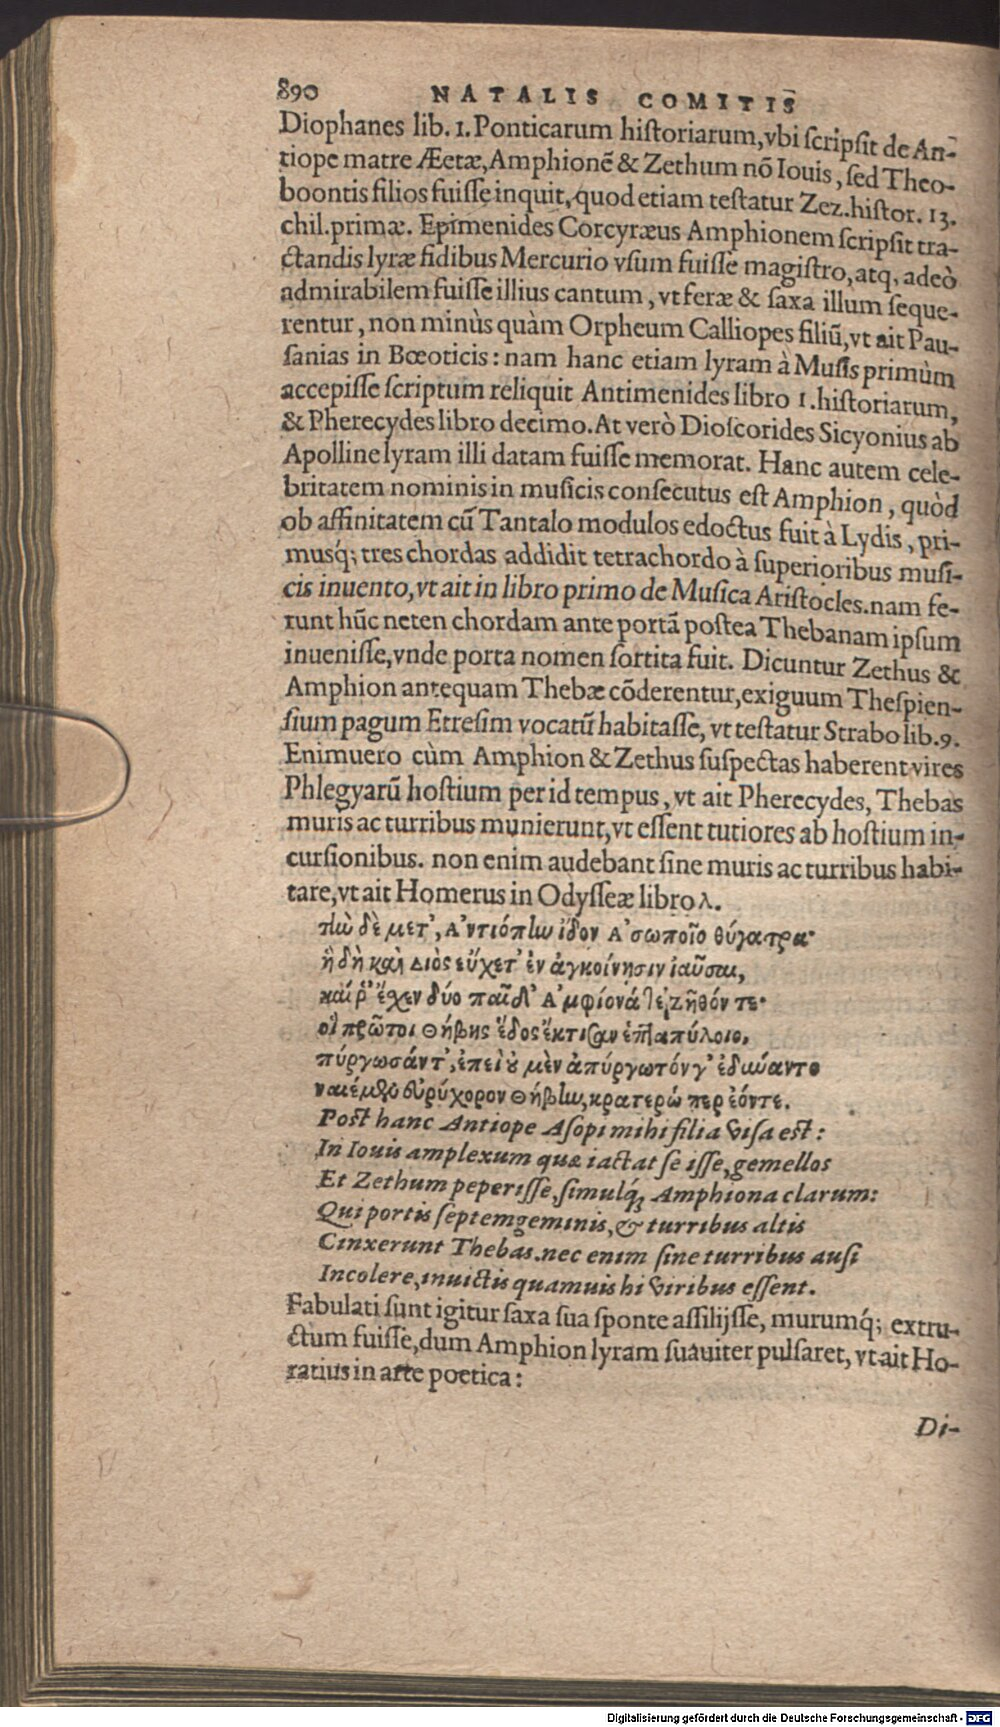 890 NATALIS COMITIS
Diophanes lib. 1. Ponticarum historiarum, vbi scripsit de An-
tiope matre Æetæ, Amphionē & Zethum nō Iouis, sed Theo-
boontis filios fuisse inquit, quod etiam testatur Zez. histor. 13.
chil. primæ. Epimenides Corcyræus Amphionem scripsit tra-
ctandis lyræ fidibus Mercurio vsum fuisse magistro, atq, adeò
admirabilem fuisse illius cantum, vt feræ & saxa illum seque-
rentur, non minùs quàm Orpheum Calliopes filiū, vt ait Pau-
sanias in Bœoticis: nam hanc etiam lyram à Musis primùm
accepisse scriptum reliquit Antimenides libro 1. historiarum,
& Pherecydes libro decimo. At verò Dioscorides Sicyonius ab
Apolline lyram illi datam fuisse memorat. Hanc autem cele-
britatem nominis in musicis consecutus est Amphion, quòd
ob affinitatem cū Tantalo modulos edoctus fuit à Lydis, pri-
musq́; tres chordas addidit tetrachordo à superioribus musi-
cis inuento, vt ait in libro primo de Musica Aristocles. nam fe-
runt hūc neten chordam ante portā postea Thebanam ipsum
inuenisse, vnde porta nomen sortita fuit. Dicuntur Zethus &
Amphion antequam Thebæ cōderentur, exiguum Thespien-
sium pagum Etresim vocatū habitasse, vt testatur Strabo lib. 9.
Enimuero cùm Amphion & Zethus suspectas haberent vires
Phlegyarū hostium per id tempus, vt ait Pherecydes, Thebas
muris ac turribus munierunt, vt essent tutiores ab hostium in-
cursionibus. non enim audebant sine muris ac turribus habi-
tare, vt ait Homerus in Odysseæ libro λ.
τὴν δὲ μετ', Ἀντιόπην ἴδον Ἀσωποῖο θύγατρα·
ἣ δὴ καὶ Διὸς εὔχετ' ἐν ἀγκοίνησιν ἰαῦσαι,
καί ῥ' ἔχεν δύο παῖδ' Ἀμφίονά τε, Ζῆθόν τε·
οἳ πρῶτοι Θήβης ἕδος ἔκτισαν ἑπταπύλοιο,
πύργωσάντ', ἐπεὶ οὐ μὲν ἀπύργωτόν γ' ἐδύναντο
ναιέμεν εὐρύχορον Θήβην, κρατερώ περ ἐόντε.
Post hanc Antiope Asopi mihi filia visa est:
In Iouis amplexum quæ iactat se isse, gemellos
Et Zethum peperisse, simulq́, Amphiona clarum:
Qui portis septemgeminis, & turribus altis
Cinxerunt Thebas. nec enim sine turribus ausi
Incolere, inuictis quamuis hi viribus essent.
Fabulati sunt igitur saxa sua sponte assilijsse, murumq́; extru-
ctum fuisse, dum Amphion lyram suauiter pulsaret, vt ait Ho-
ratius in arte poetica:
Di-
Digitalisierung gefördert durch die Deutsche Forschungsgemeinschaft - DFG